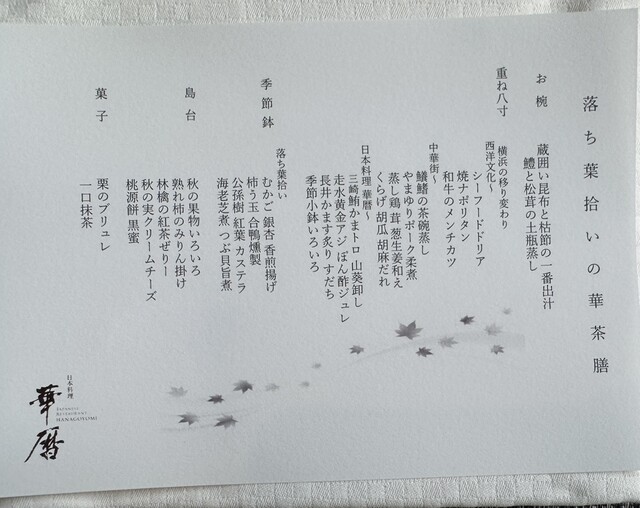 落ち葉拾いの華茶膳
お椀
蔵囲い昆布と枯節の一番出汁
鱧と松茸の土瓶蒸し
重ね八寸
横浜の移り変わり
西洋文化〜
シーフードドリア
焼ナポリタン
和牛のメンチカツ
中華街〜
鱶鰭の茶碗蒸し
やまゆりポーク柔煮
蒸し鶏 茸 葱生姜和え
くらげ 胡瓜 胡麻だれ
日本料理 華暦〜
三崎鮪かまトロ 山葵卸し
走水黄金アジ ぽん酢ジュレ
長井かます炙り すだち
季節小鉢いろいろ
季節鉢
落ち葉拾い
むかご 銀杏 香煎揚げ
柿う玉 合鴨燻製
公孫樹 紅葉 カステラ
海老芝煮 つぶ貝旨煮
島台
秋の果物いろいろ
熟れ柿のみりん掛け
林檎の紅茶ぜりー
秋の実クリームチーズ
桃源餅 黒蜜
菓子
栗のブリュレ
一口抹茶
日本料理
華暦
JAPANESE
RESTAURANT
HANAGOYOMI